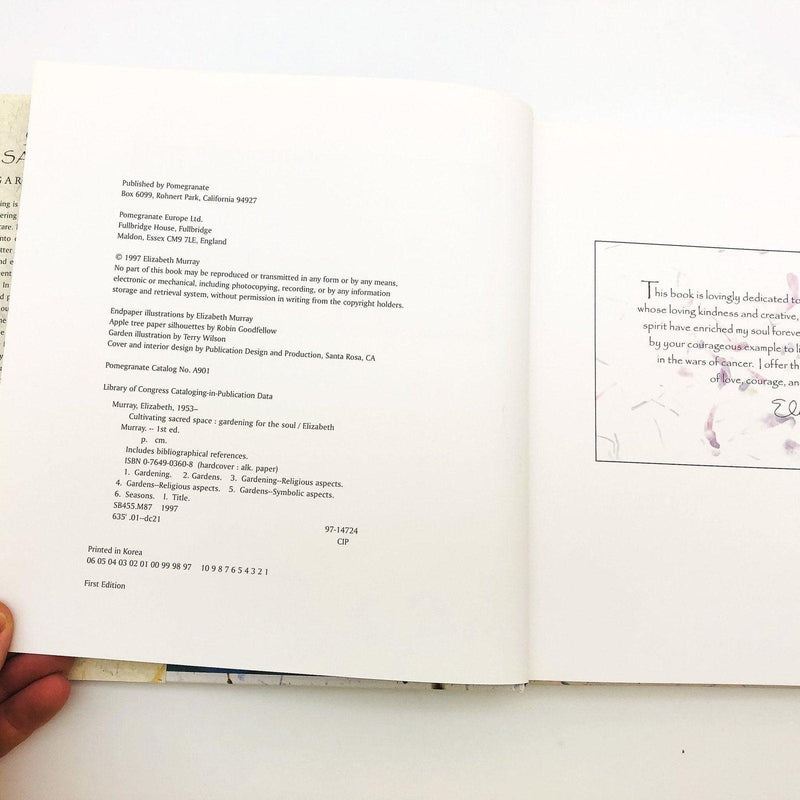 SA
GAR
Published by Pomegranate
Box 6099, Rohnert Park, California 94927
Pomegranate Europe Ltd.
Fullbridge House, Fullbridge
Maldon, Essex CM9 7LE, England
© 1997 Elizabeth Murray
No part of this book may be reproduced or transmitted in any form or by any means,
electronic or mechanical, including photocopying, recording, or by any information
storage and retrieval system, without permission in writing from the copyright holders.
Endpaper illustrations by Elizabeth Murray
Apple tree paper silhouettes by Robin Goodfellow
Garden illustration by Terry Wilson
Cover and interior design by Publication Design and Production, Santa Rosa, CA
Pomegranate Catalog No. A901
Library of Congress Cataloging-in-Publication Data
Murray, Elizabeth, 1953–
Cultivating sacred space : gardening for the soul / Elizabeth
Murray. -- 1st ed.
p. cm.
Includes bibliographical references.
ISBN 0-7649-0360-8 (hardcover : alk. paper)
1. Gardening. 2. Gardens. 3. Gardening--Religious aspects.
4. Gardens--Religious aspects. 5. Gardens--Symbolic aspects.
6. Seasons. I. Title.
SB455.M87 1997
635' .01--dc21
97-14724
CIP
Printed in Korea
06 05 04 03 02 01 00 99 98 97 10 9 8 7 6 5 4 3 2 1
First Edition
This book is lovingly dedicated to
whose loving kindness and creative,
spirit have enriched my soul foreve
by your courageous example to li
in the wars of cancer. I offer th
of love, courage, an
Eli